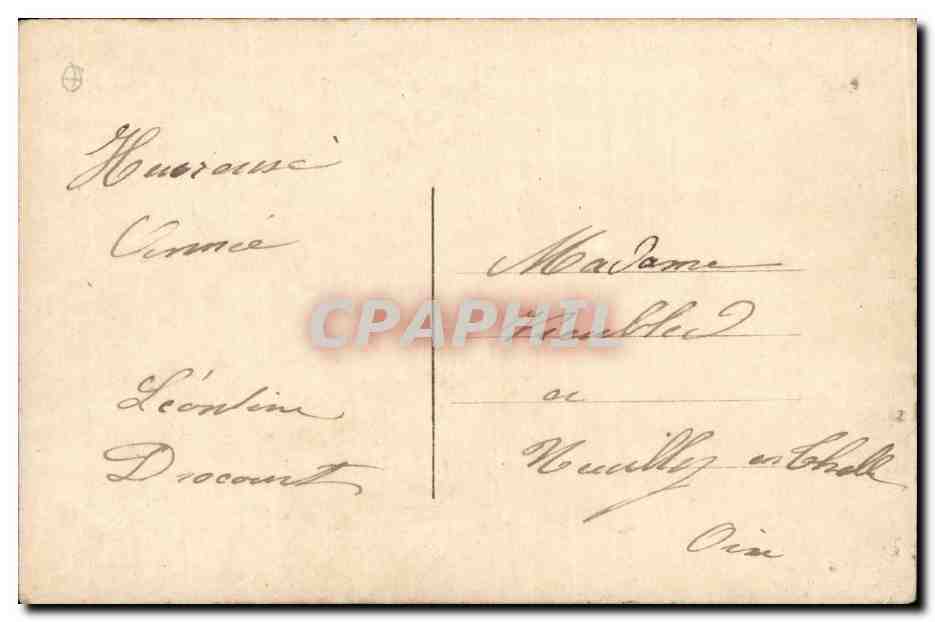 Heurouse
Année
Léontine
Drocourt
CPAPHIL
Madame
a
Neuilly en Thelle
Oise